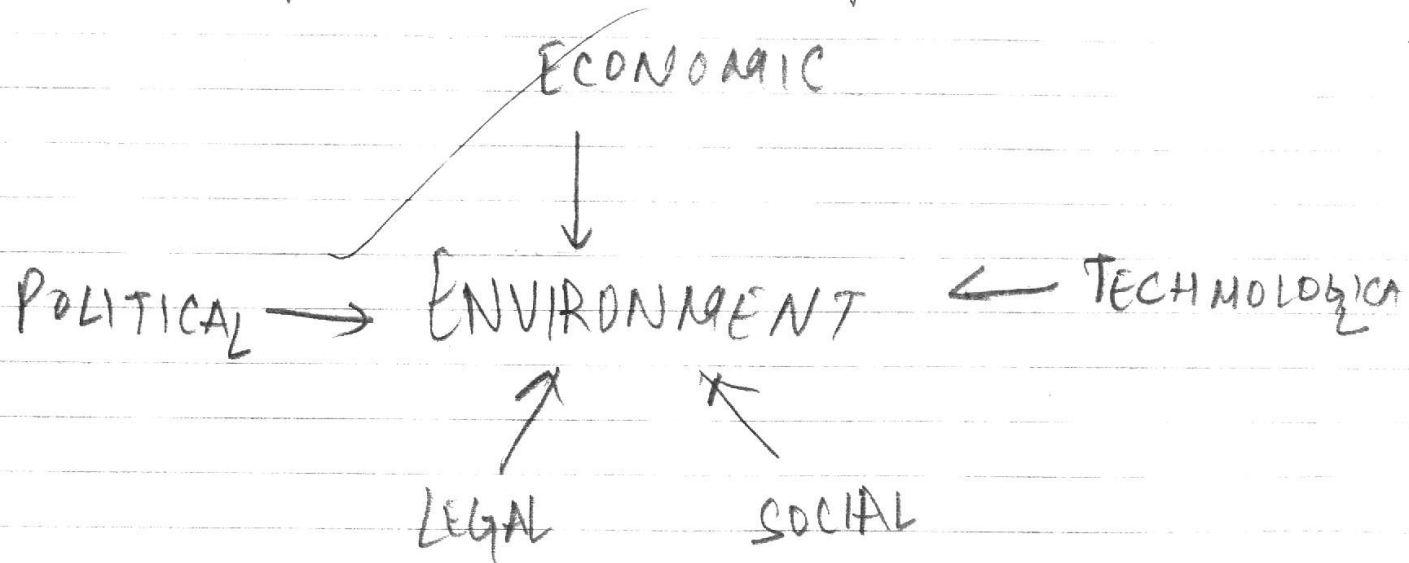 ECONOMIC
POLITICAL → ENVIRONMENT ← TECHNOLOGICA
LEGAL SOCIAL